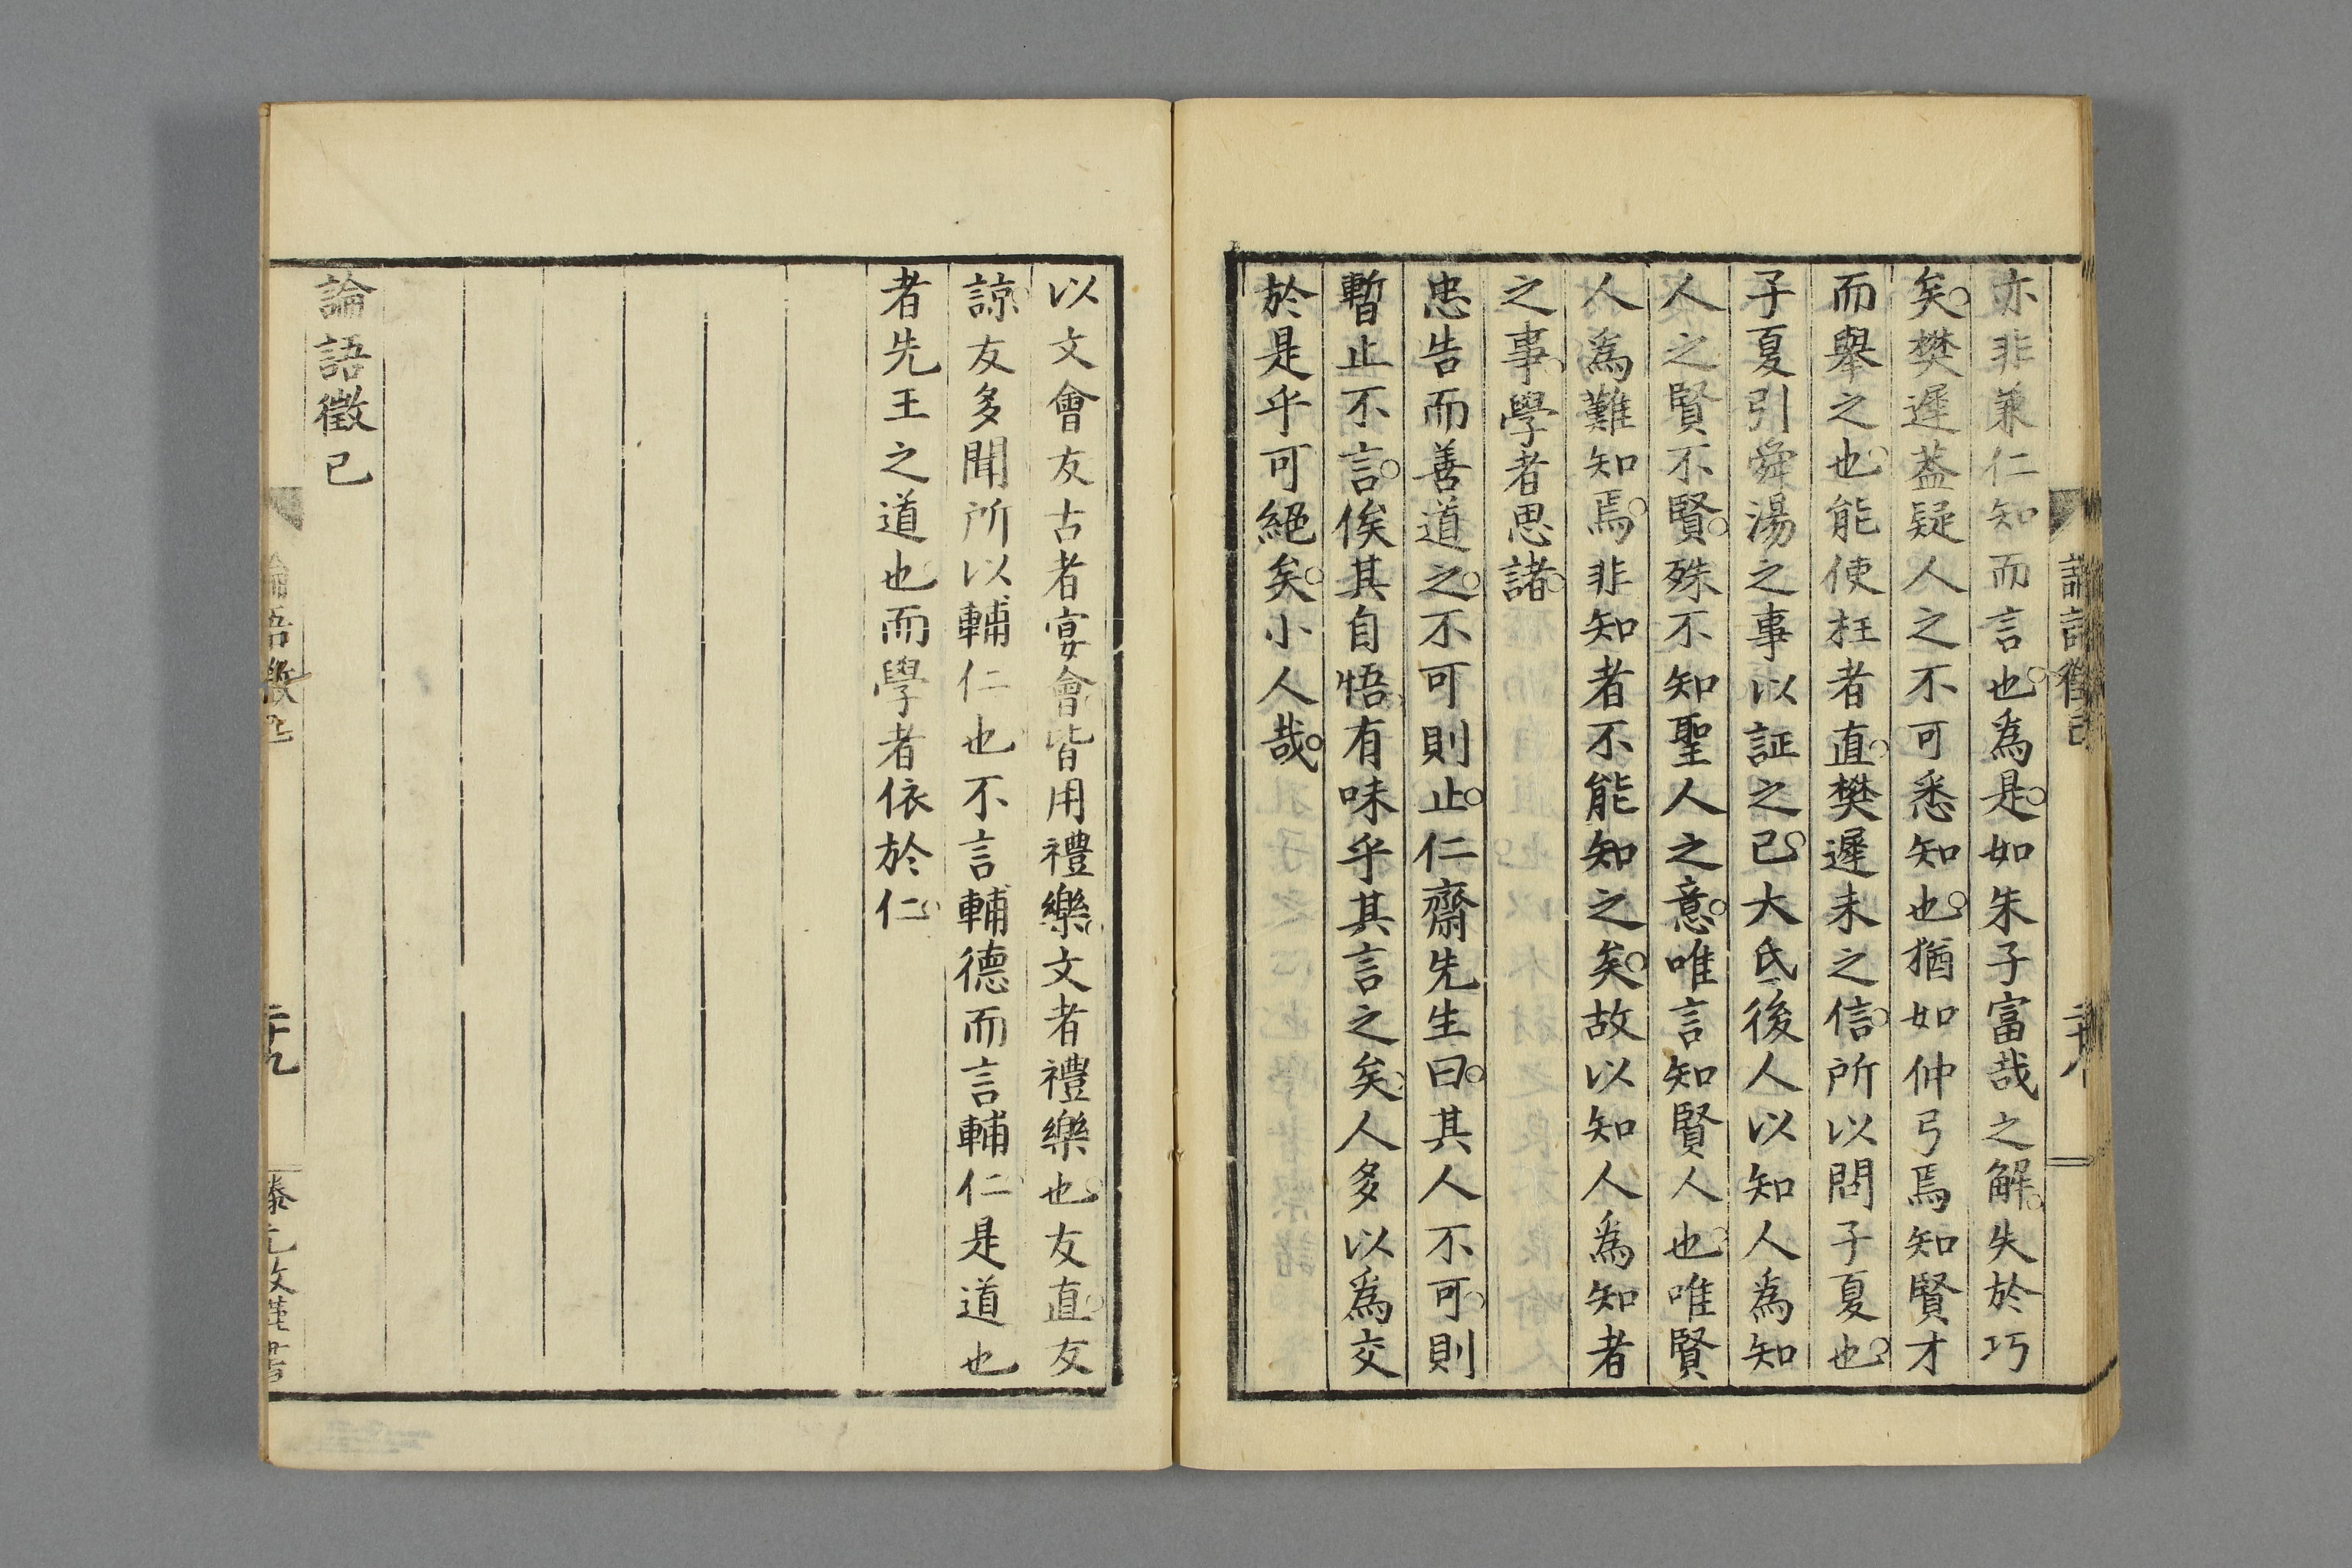 亦非兼仁知而言也爲是如朱子富哉之解失於巧
矣樊遲葢疑人之不可悉知也猶如仲弓焉知賢才
而舉之也能使枉者直樊遲未之信所以問子夏也
子夏引舜湯之事以証之已大氐後人以知人爲知
人之賢不賢殊不知聖人之意唯言知賢人也唯賢
人爲難知焉非知者不能知之矣故以知人爲知者
之事學者思諸
忠告而善道之不可則止仁齋先生曰其人不可則
暫止不言俟其自悟有味乎其言之矣人多以爲交
於是乎可絕矣小人哉
以文會友古者宴會皆用禮樂文者禮樂也友直友
諒友多聞所以輔仁也不言輔德而言輔仁是道也
者先王之道也而學者依於仁
論語徵已
論語徵已
二十九